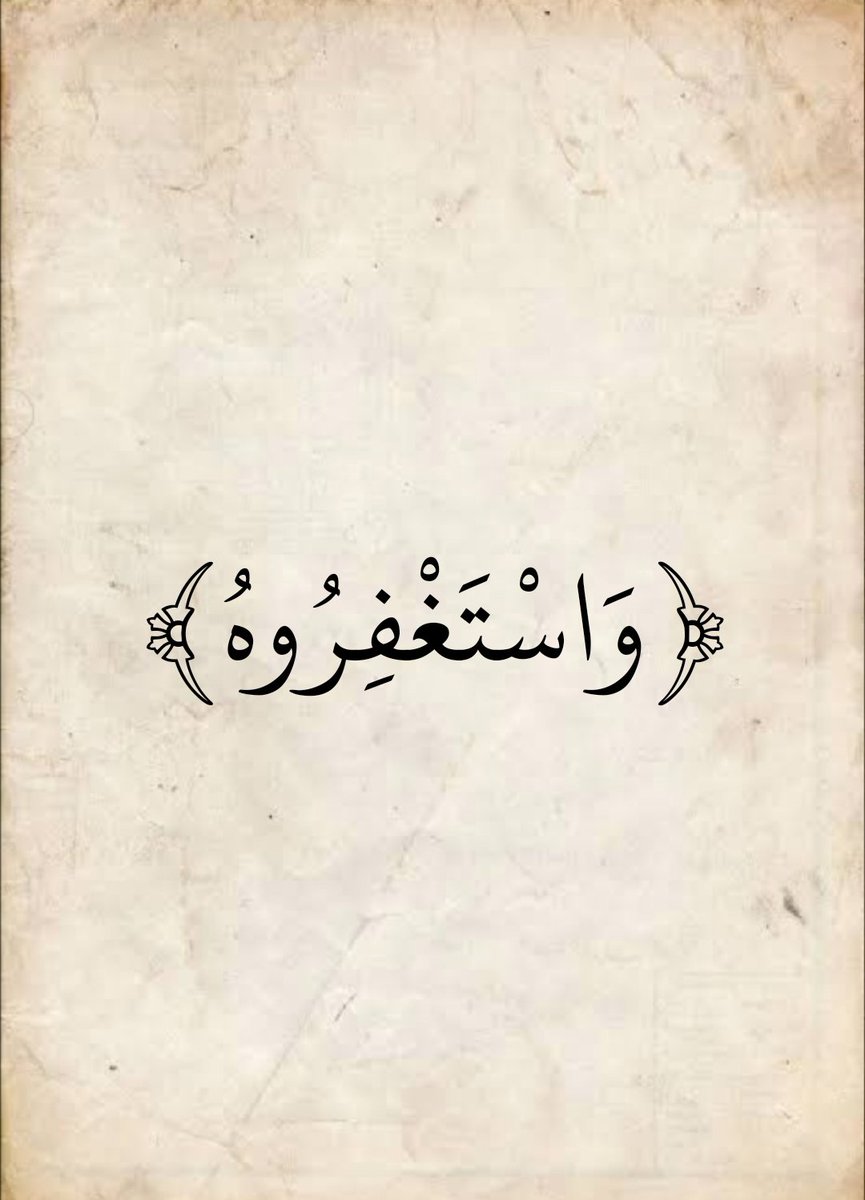 ﴿ وَاسْتَغْفِرُوهُ ﴾